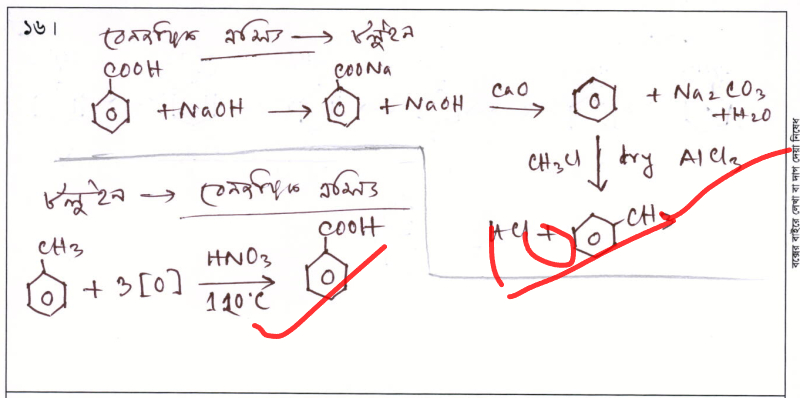 ১৬। বেনজয়িক এসিড → টলুইন
COOH COONa
+NaOH → + NaOH CaO → + Na2CO3
+H2O
CH3Cl ↓ dry AlCl3
HCl + CH3
টলুইন → বেনজয়িক এসিড
CH3 COOH
+ 3[O] HNO3 →
110°C
বক্সের বাইরে লেখা বা দাগ দেয়া নিষেধ